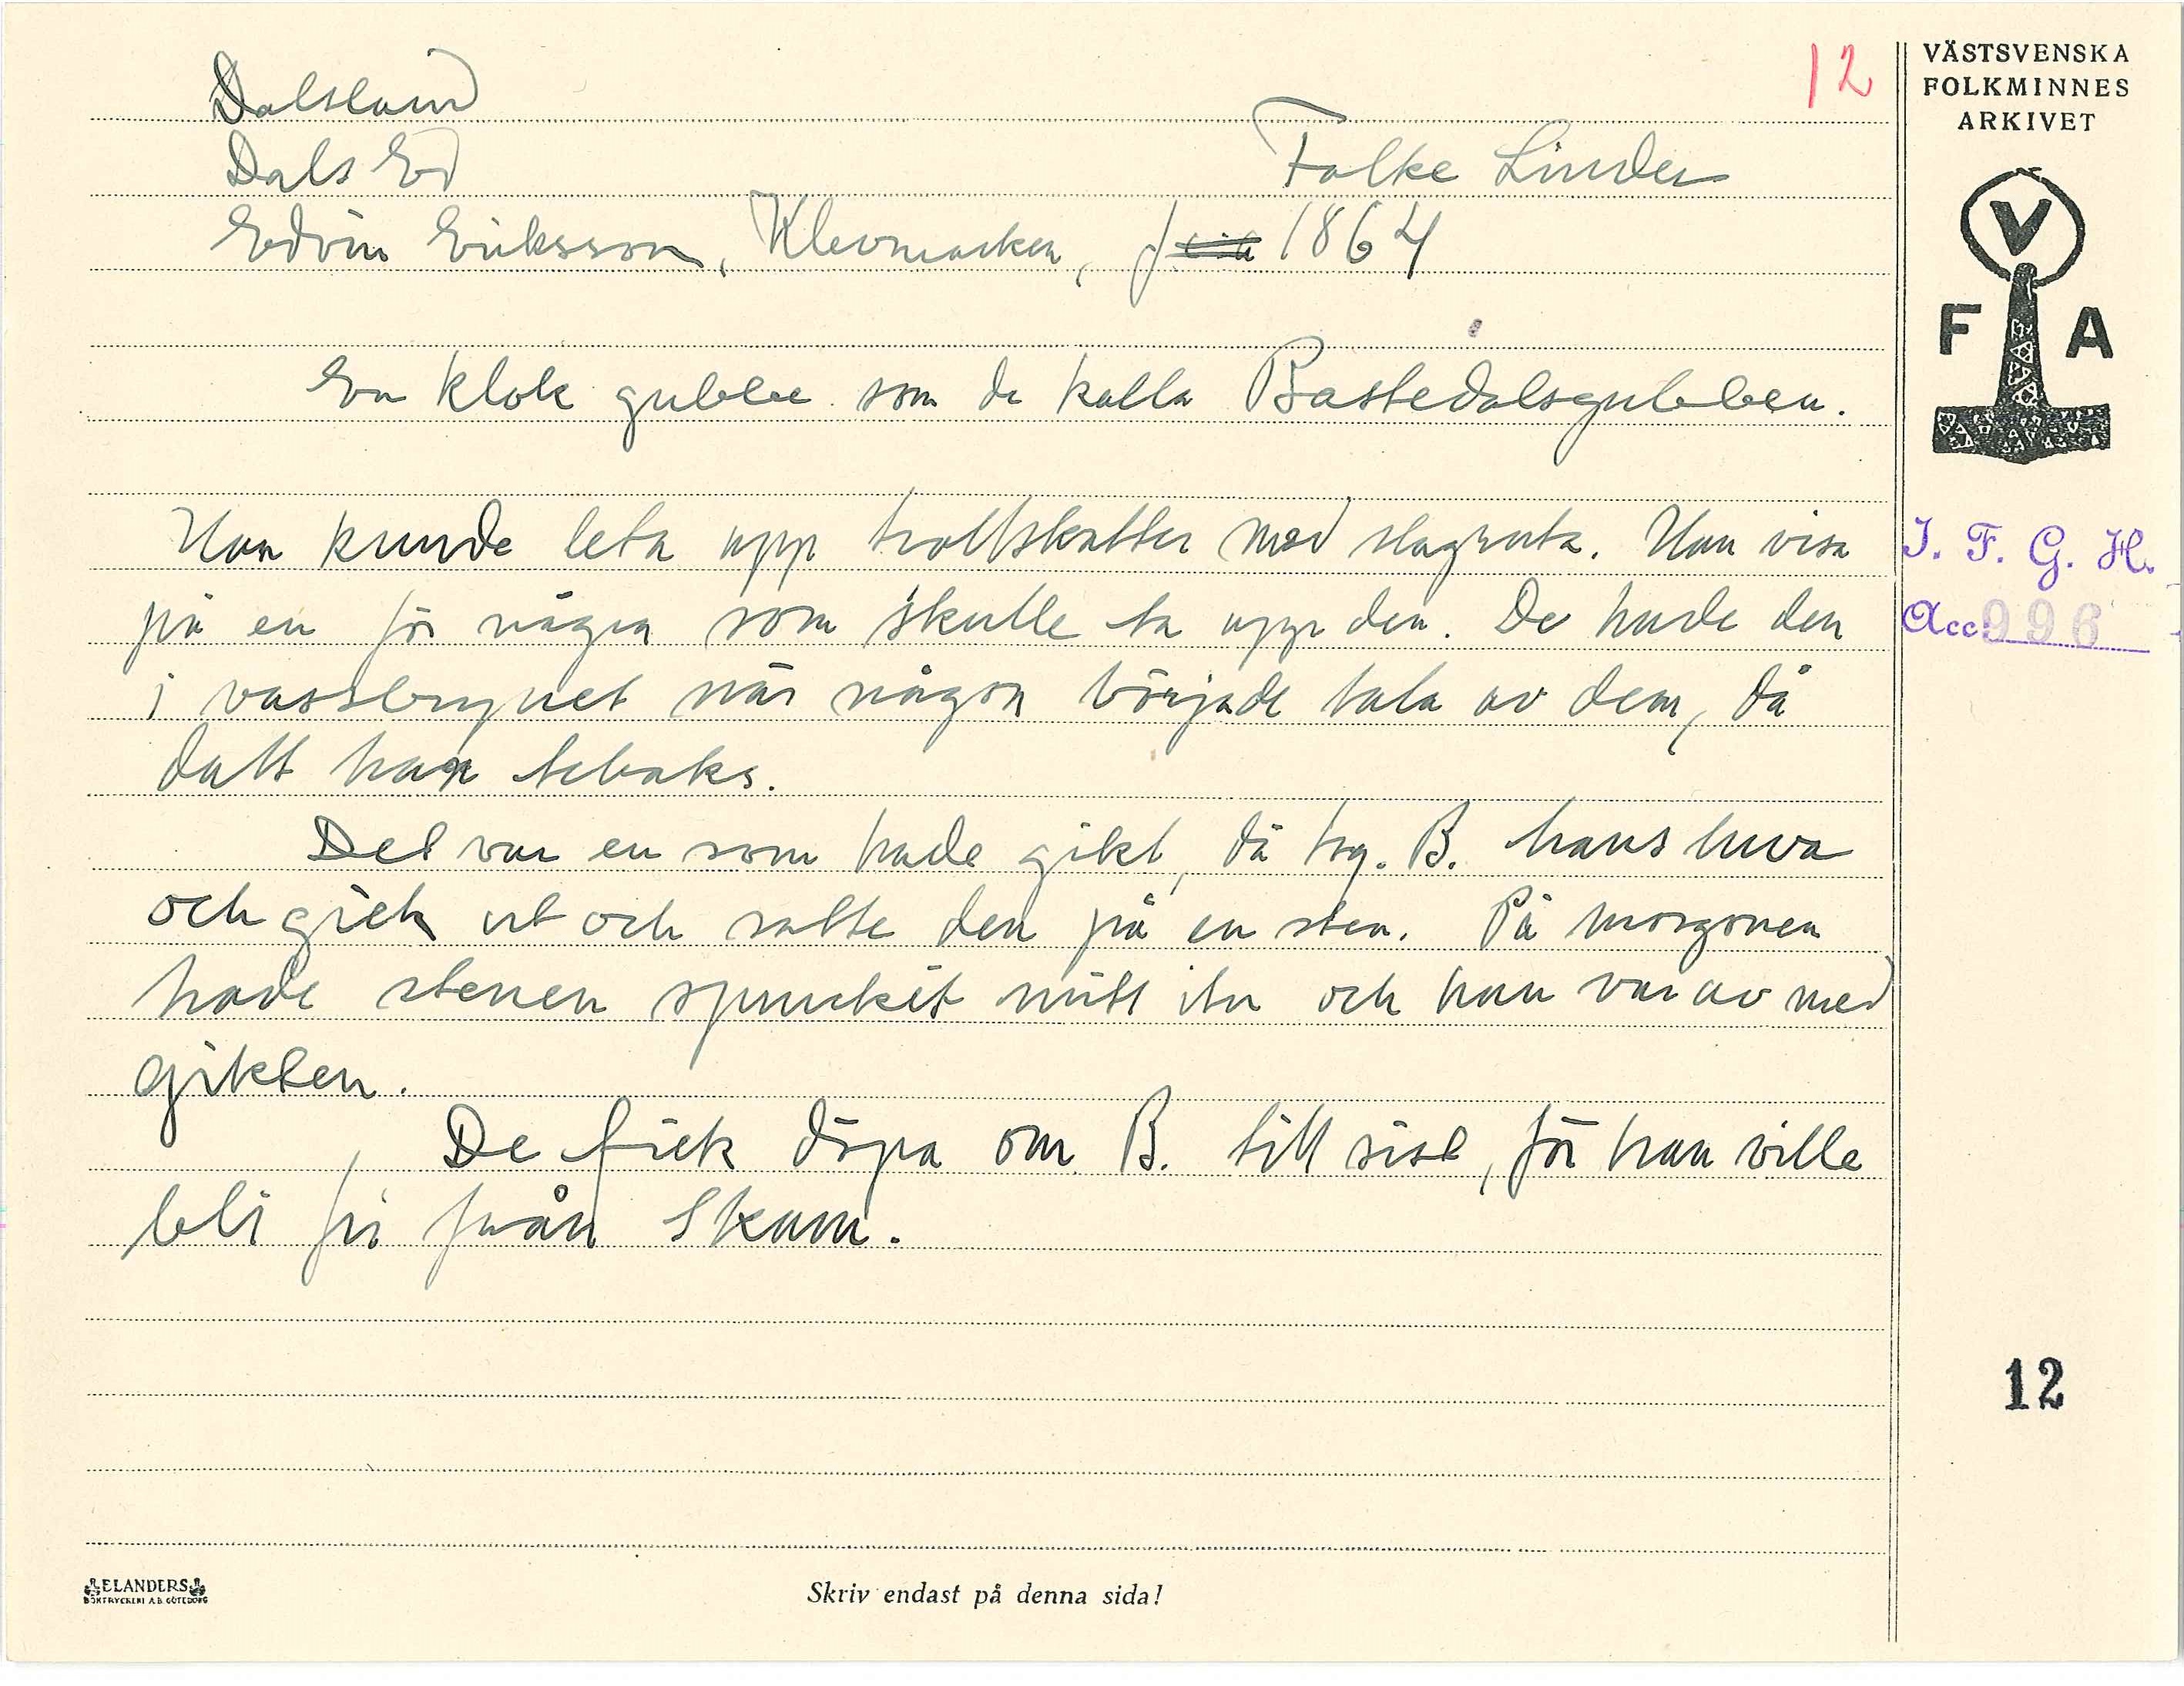 12
VÄSTSVENSKA
FOLKMINNES
ARKIVET
Dalsland
Dals Ed
Folke Linder
Edvin Eriksson, Klevmarken, f 1864
V
F A
En klok gubbe som de kalla Bastedalsgubben.
Han kunde leta upp trollskatter med slagruta. Han visa
på en för några som skulle ta upp den. De hade den
i vassbrynet när någon började tala av dem, då
datt han tebaks.
Det var en som hade gikt, då tog. B. hans luva
och gick ut och satte den på en sten. På morgonen
hade stenen spruckit mitt itu och han var av med
gikten.
De fick döpa om B. till sist, för han ville
bli fri från Skam.
I. F. G. H.
Acc 996
12
ELANDERS
BOKTRYCKERI A.B. GÖTEBORG
Skriv endast på denna sida!